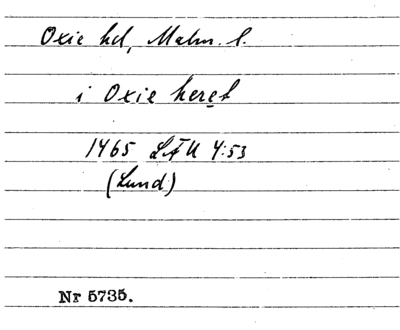 Oxie hd, Malm. l.
i Oxie heret
1465 LÄU 4:53
(Lund)
Nr 5735.